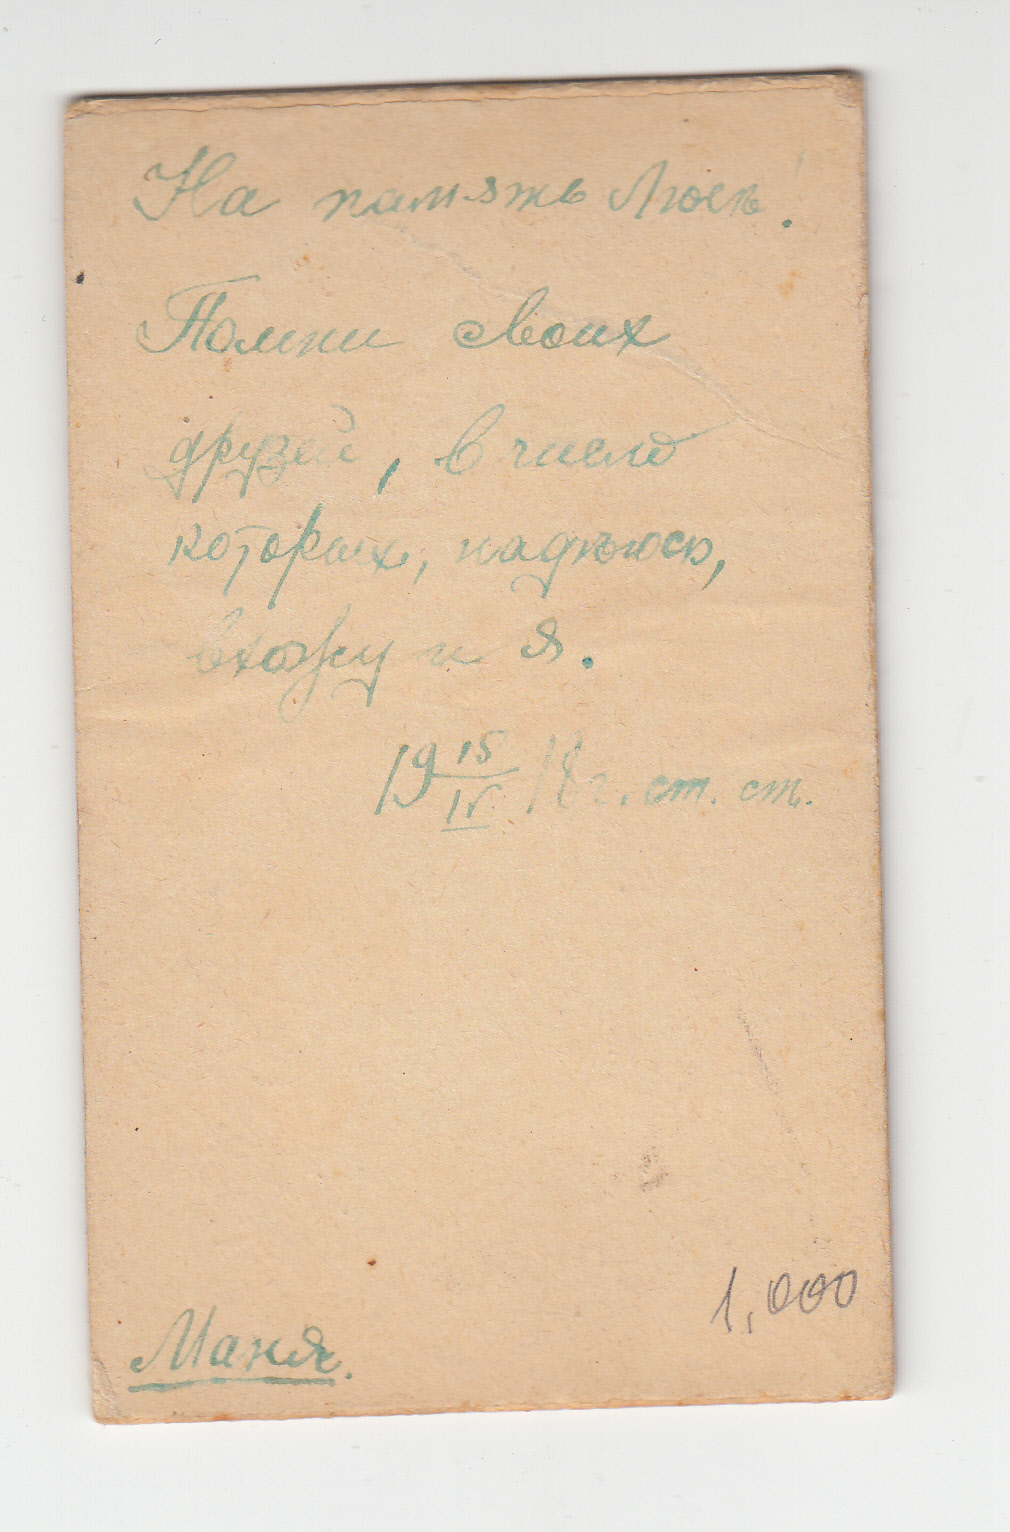 На память Люсѣ!
Помни своих
друзей, в число
которых, надѣюсь,
вхожу и я.
19 15/IV 18 г. ст. ст.
1,000
Маня.